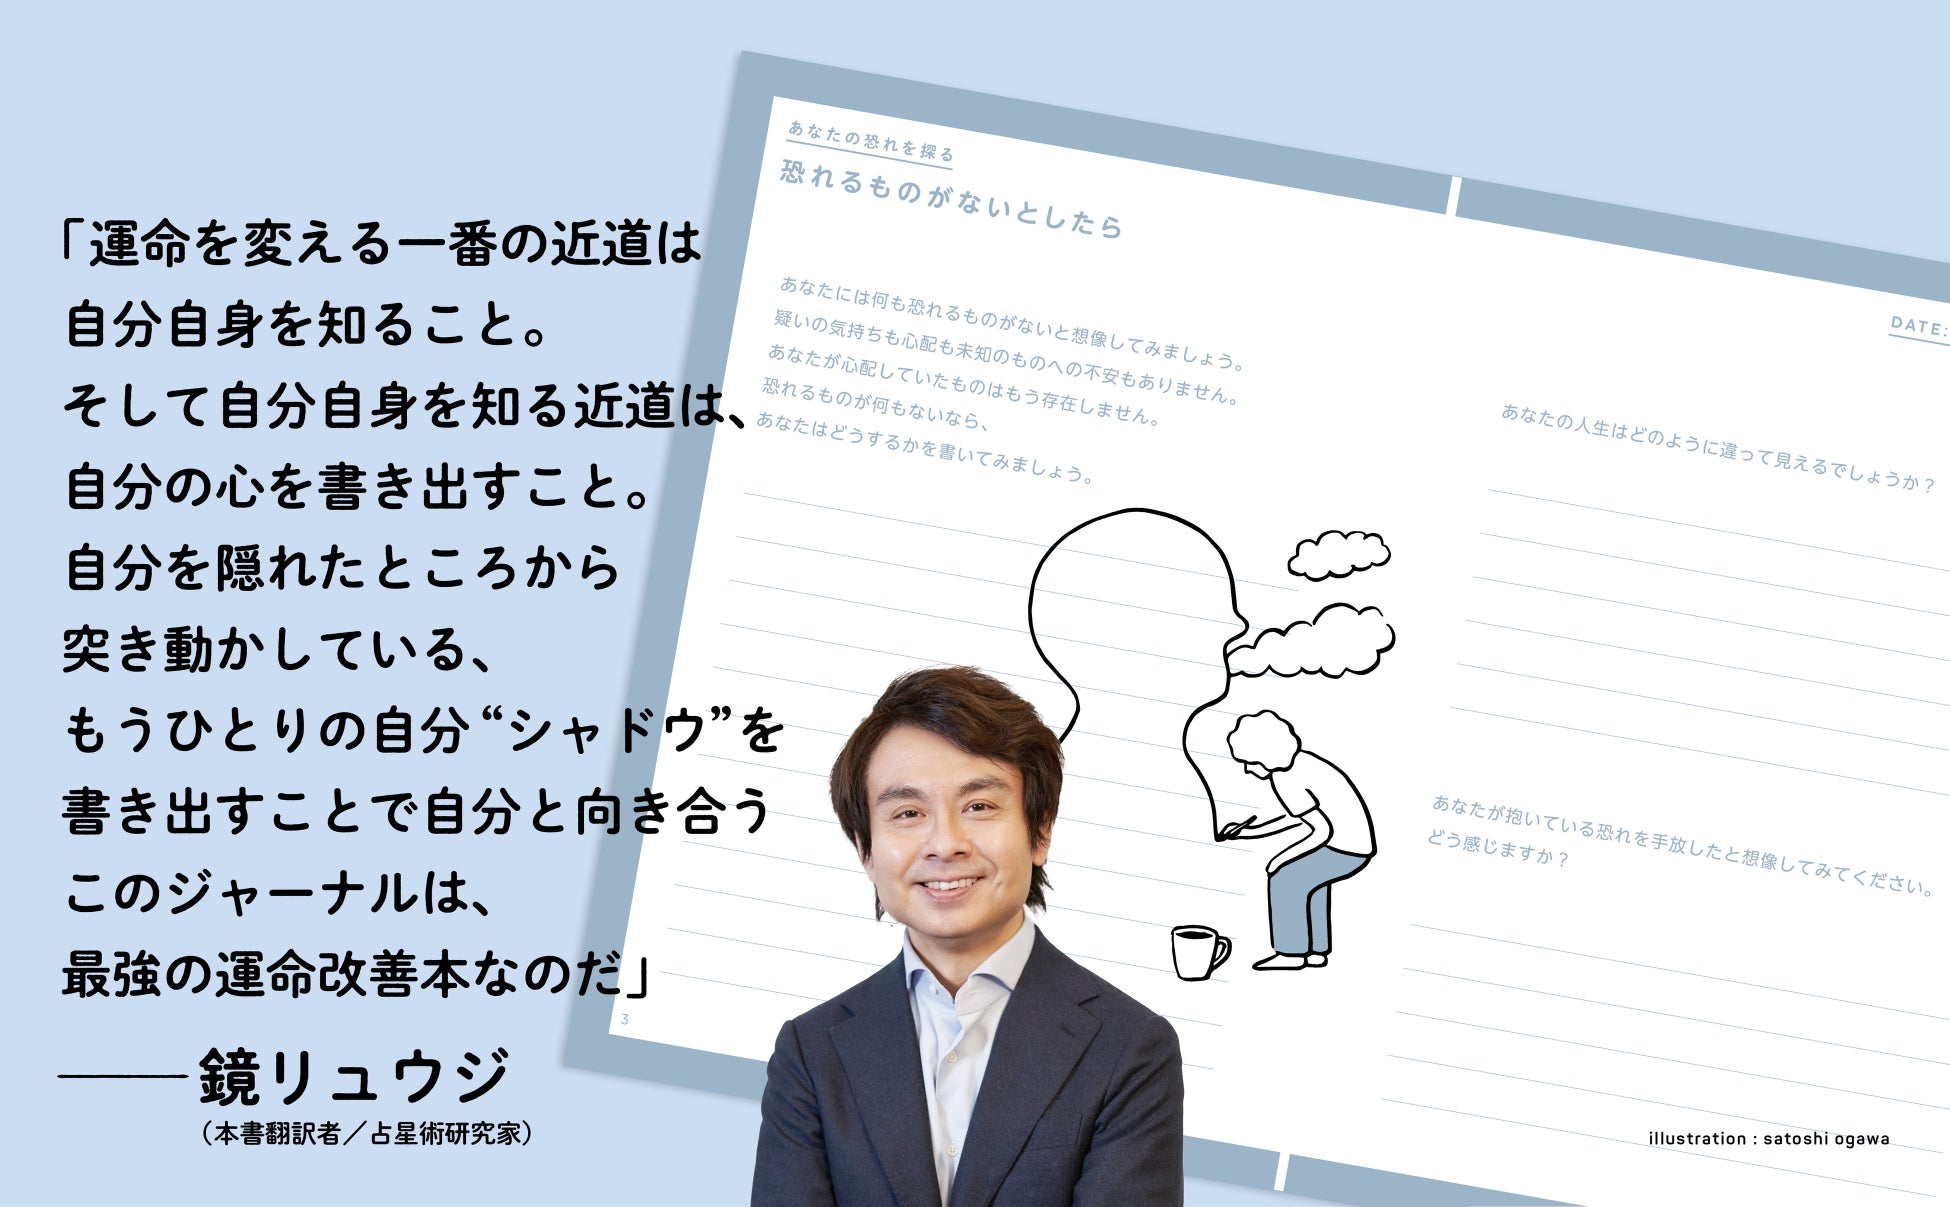 「運命を変える一番の近道は
自分自身を知ること。
そして自分自身を知る近道は、
自分の心を書き出すこと。
自分を隠れたところから
突き動かしている、
もうひとりの自分“シャドウ”を
書き出すことで自分と向き合う
このジャーナルは、
最強の運命改善本なのだ」
鏡リュウジ
（本書翻訳者／占星術研究家）
あなたの恐れを探る
恐れるものがないとしたら
あなたには何も恐れるものがないと想像してみましょう。
疑いの気持ちも心配も未知のものへの不安もありません。
あなたが心配していたものはもう存在しません。
恐れるものが何もないなら、
あなたはどうするかを書いてみましょう。
3
DATE:
あなたの人生はどのように違って見えるでしょうか？
あなたが抱いている恐れを手放したと想像してみてください。
どう感じますか？
illustration : satoshi ogawa